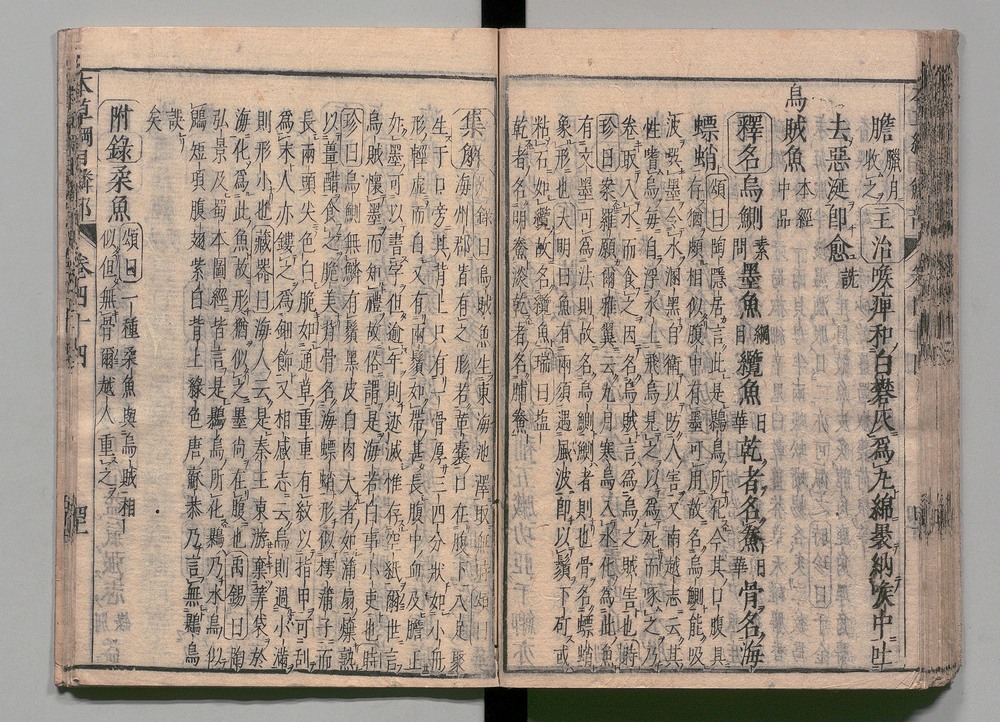 膽 臘月收之 主治喉痺和白礬灰爲丸綿裹納喉中吐
去惡涎即愈 詵
烏賊魚 本經中品
釋名 烏鰂 素問 墨魚 綱目 纜魚 日華 乾者名鯗 日華 骨名海
螵蛸 頌曰陶隱居言此是鷃烏所化今其口腹具
存猶頗相似腹中有墨可用故名烏鰂能吸
波噀墨令水溷黑自衛以防人害又南越志云其
性嗜烏每自浮水上飛烏見之以爲死而啄之乃
卷取入水而食之因名烏賊言爲烏之賊害也時
珍曰案羅願爾雅翼云九月寒烏入水化爲此魚
有文墨可爲法則故名烏鰂鰂者則也骨名螵蛸
象形也大明曰魚有兩須遇風波即以鬚下矴或
粘石如纜故名纜魚瑞曰鹽
乾者名明鯗淡乾者名脯鯗
集解 別錄曰烏賊魚生東海池澤取無時頌曰
近海州郡皆有之形若革囊口在腹下八足聚
生于口旁其背上只有一骨厚三四分狀如小舟
形輕虛而白又有兩鬚如帶甚長腹中血及膽正
如墨可以書字但逾年則迹滅惟存空紙爾世言
烏賊懷墨而知禮故俗謂是海若白事小吏也時
珍曰烏鰂無鱗有鬚黑皮白肉大者如蒲扇煠熟
以薑醋食之脆美背骨名海螵蛸形似樗蒲子而
長兩頭尖色白脆如通草重重有紋以指甲可刮
爲末人亦鏤之爲鈿飾又相感志云烏則過小滿
則形小也藏器曰海人云是秦王東游棄筭袋於
海化爲此魚故形猶似之墨尚在腹也禹錫曰陶
弘景及蜀本圖經皆言是鷃烏所化鷃乃水烏似
鴟短項腹翅紫白背上綠色唐蘇恭乃言無鷃烏
誤
矣
附錄柔魚 頌曰一種柔魚與烏賊相
似但無骨爾越人重之
本草綱目鱗部 卷四十四